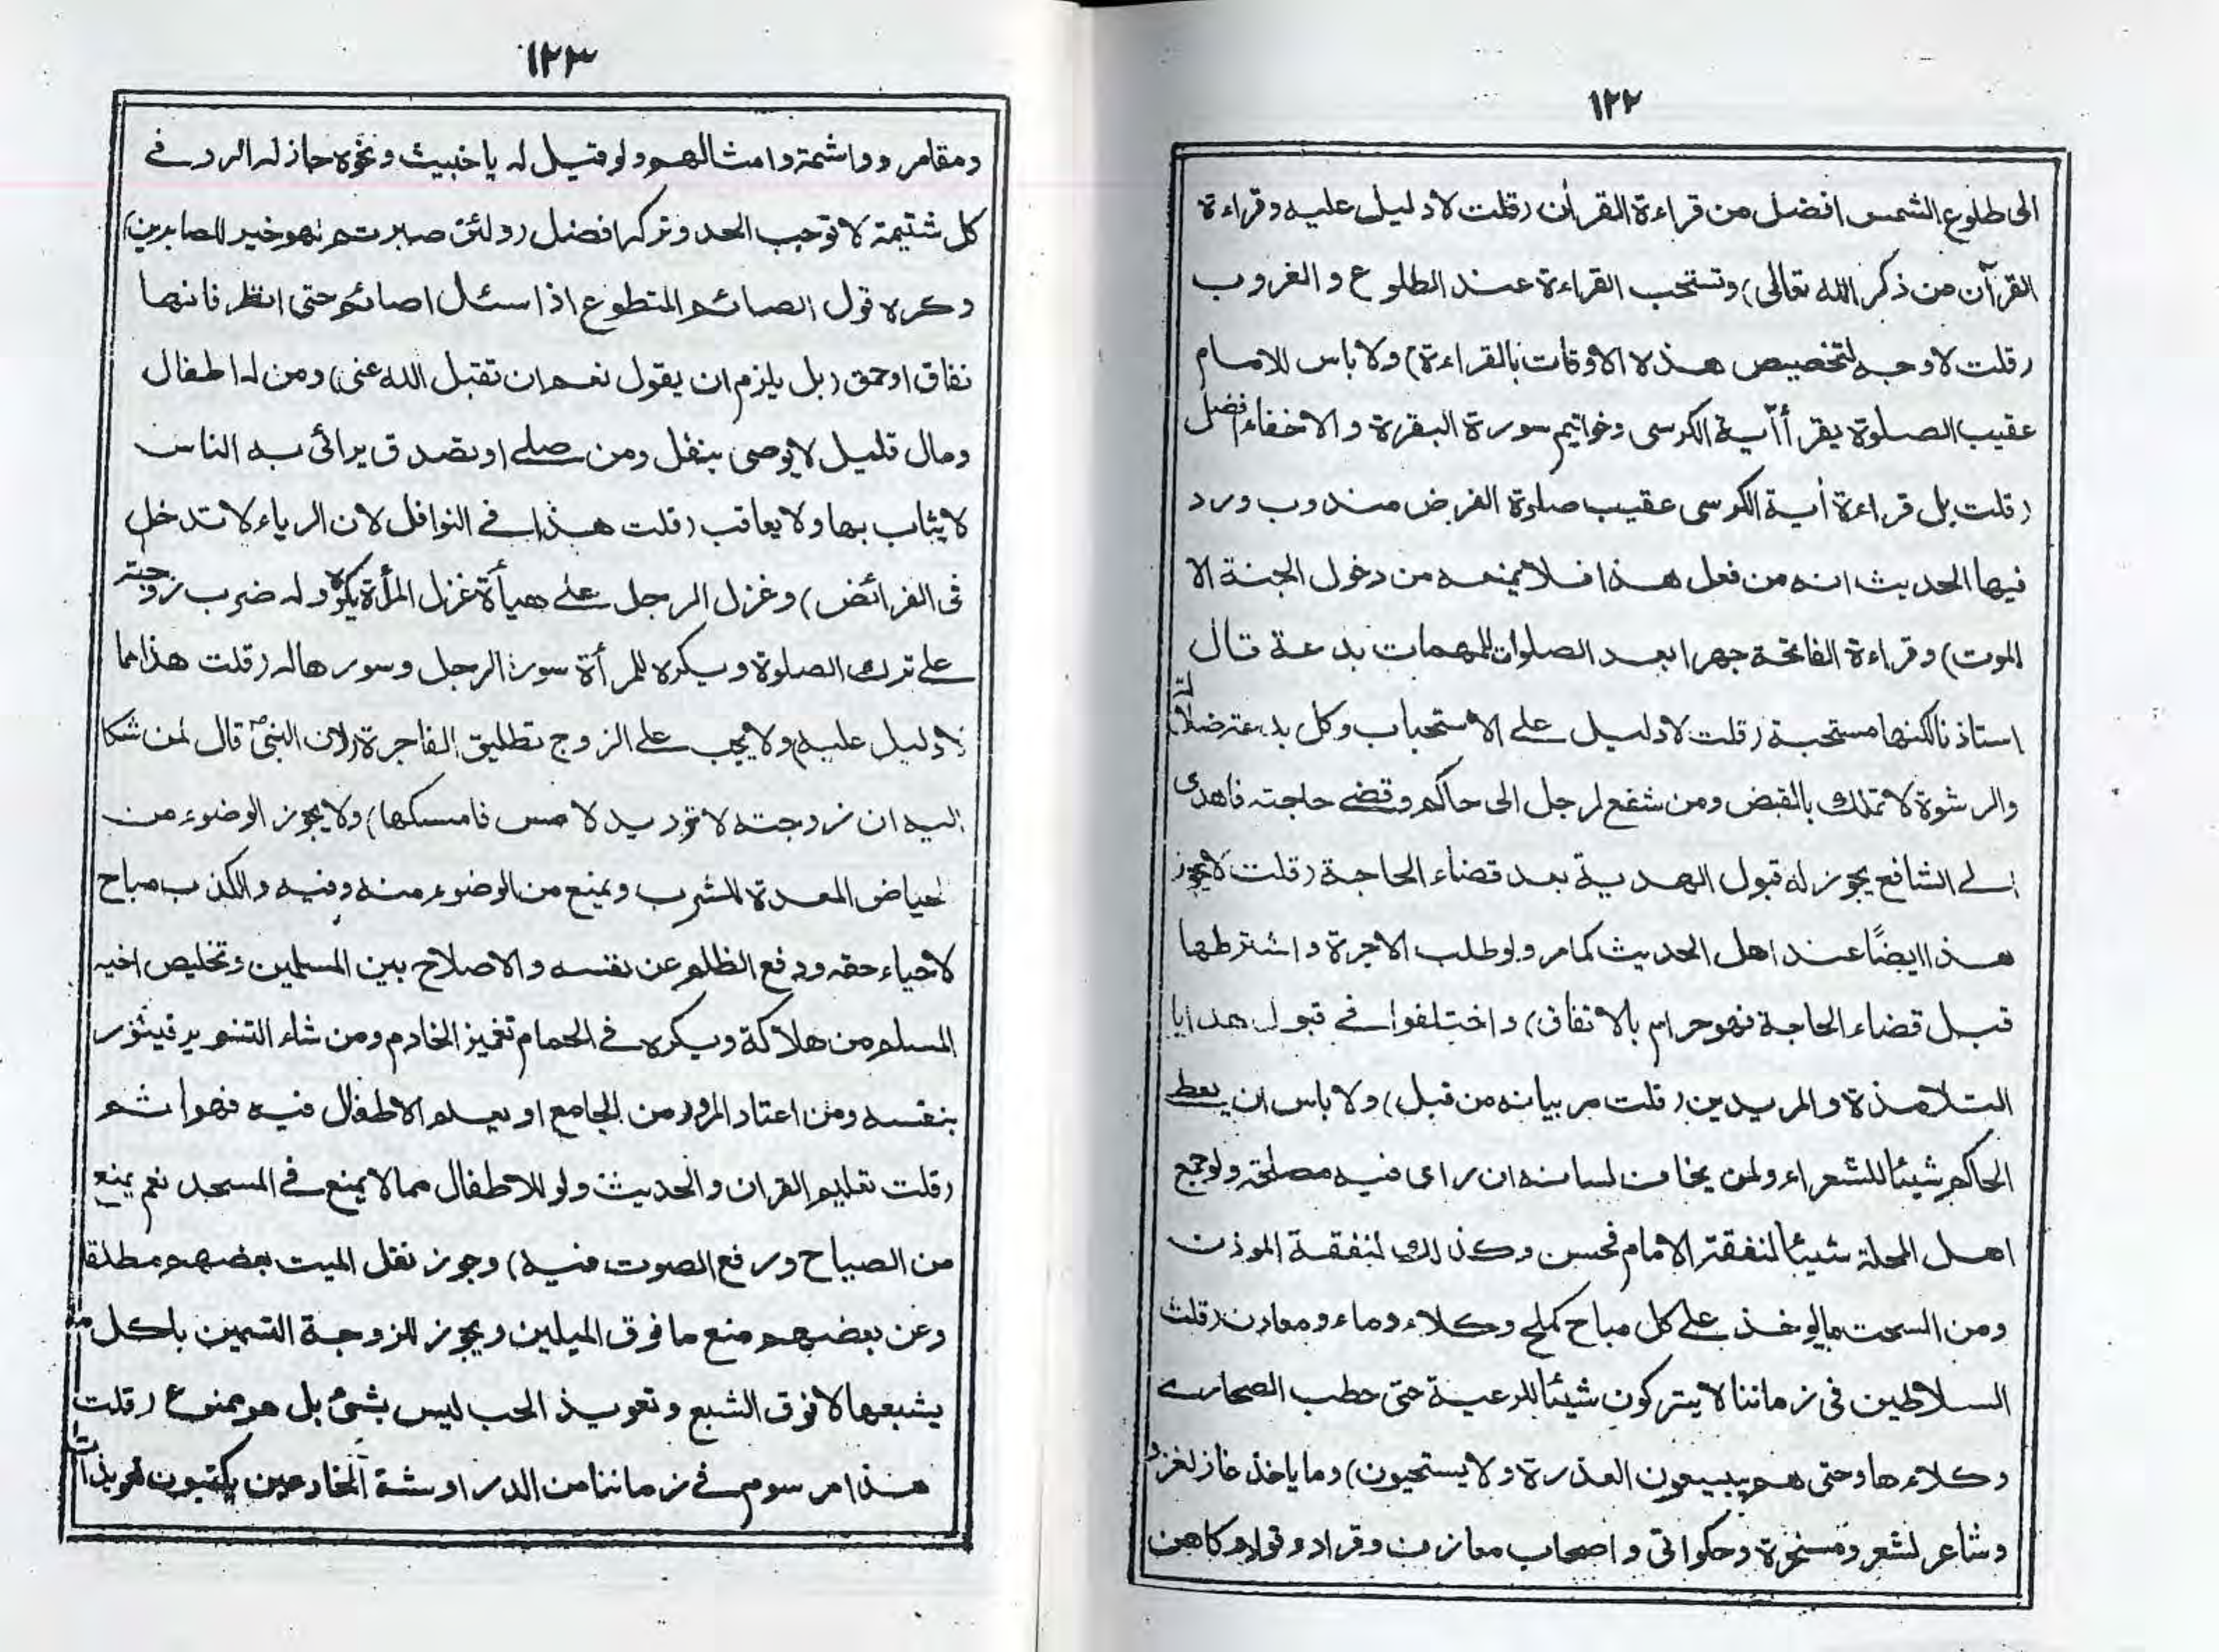 ١٢٢
الى طلوع الشمس افضل من قراءة القرأن (قلت لا دليل عليه وقراءة
القرآن من ذكر الله تعالى) وتستحب القراءة عند الطلوع والغروب
(قلت لا وجه لتخصيص هذه الاوقات بالقراءة) ولا باس للامام
عقيب الصلوة يقرأ أآية الكرسى وخواتيم سورة البقرة والاخفاء افضل
(قلت بل قراءة أية الكرسى عقيب صلوة الفرض مندوب ورد
فيها الحديث انه من فعل هذا فلا يمنعه من دخول الجنة الا
الموت) وقراءة الفاتحة جهرا بعد الصلوات للمهمات بدعة قال
استاذنا لكنها مستحبة (قلت لا دليل على الاستحباب وكل بدعة ضلالة)
والرشوة لا تملك بالقبض ومن شفع لرجل الى حاكم وقضى حاجته فاهدى
الى الشافع يجوز له قبول الهدية بعد قضاء الحاجة (قلت لا يجوز
هذا ايضًا عند اهل الحديث كما مر ولو طلب الاجرة واشترطها
قبل قضاء الحاجة فهو حرام بالاتفاق) واختلفوا فى قبول هدايا
التلامذة والمريدين (قلت مر بيانه من قبل) ولا باس ان يعطى
الحاكم شيئا للشعراء ولمن يخاف لسانه ان راى فيه مصلحة ولو جمع
اهل المحلة شيئا لنفقة الامام فحسن وكذلك لنفقة الموذن
ومن السحت ما يوخذ على كل مباح كملح وكلاء وماء ومعادن (قلت
السلاطين فى زماننا لا يتركون شيئا للرعية حتى حطب الصحارى
وكلاءها وحتى هم يبيعون العذرة ولا يستحيون) وما ياخذ غاز لغزو
وشاعر لشعر ومسخرة وحكواتى واصحاب معازف وقراد وقواد وكاهن
١٢٣
ومقامر وواشمة وامثالهم ولو قيل له يا خبيث ونحوه جاز له الرد فى
كل شتيمة لا توجب الحد وتركه افضل (ولئن صبرتم لهو خير للصابرين)
وكره قول الصائم المتطوع اذا سئل اصائم حتى انظر فانها
نفاق او حمق (بل يلزم ان يقول نعم ان تقبل الله عنى) ومن له اطفال
ومال قليل لا يوصى بنفل ومن صلى او تصدق يرائى به الناس
لا يثاب بها ولا يعاقب (قلت هذا فى النوافل لان الرياء لا تدخل
فى الفرائض) وغزل الرجل على هيأة غزل المرأة يكره وله ضرب زوجته
على ترك الصلوة ويكره للمرأة سور الرجل وسورها له (قلت هذا مما
لا دليل عليه) ولا يجب على الزوج تطليق الفاجرة (لان النبىؐ قال لمن شكا
اليه ان زوجته لا ترد يد لامس فامسكها) ولا يجوز الوضوء من
لحياض المعدة للشرب ويمنع من الوضوء منه وفيه والكذب مباح
لاحياء حقه ودفع الظلم عن نفسه والاصلاح بين المسلمين وتخليص اخيه
المسلم من هلاكة ويكره فى الحمام تغميز الخادم ومن شاء التنوير فينور
بنفسه ومن اعتاد المرور من الجامع او يعلم الاطفال فيه فهو اثم
(قلت تعليم القران والحديث ولو للاطفال مما لا يمنع فى المسجد نعم يمنع
من الصياح ورفع الصوت فيه) وجوز نقل الميت بعضهم مطلقا
وعن بعضهم منع ما فوق الميلين ويجوز للزوجة التسمين باكل ما
يشبعها لا فوق الشبع وتعويذ الحب ليس بشئ بل هو ممنوع (قلت
هذا مرسوم فى زماننا من الدراوشة الخادعين يكتبون تعويذات